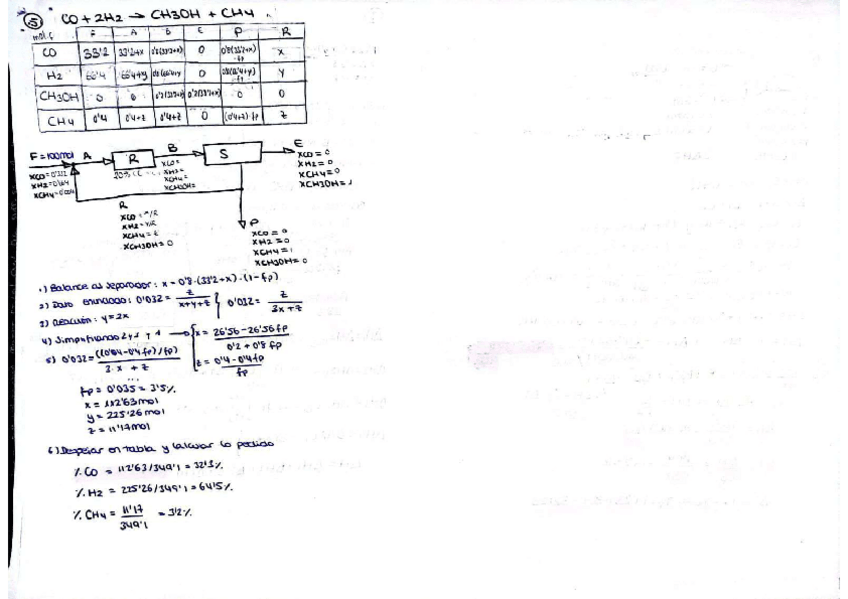 5 CO + 2H2 → CH3OH + CH4
mol F A B E P R
CO 33'2 33'2+x 0'8(33'2+x) 0 0'8(33'2+x)·fp x
H2 66'4 66'4+y 0'8(66'4+y) 0 0'8(66'4+y)·fp y
CH3OH 0 0 0'2(33'2+x) 0'2(33'2+x) 0 0
CH4 0'4 0'4+z 0'4+z 0 (0'4+z)·fp z
F=100mol A R B S E
xCO=0'332
xH2=0'664
xCH4=0'004
20%
xCO=
xH2=
xCH4=
xCH3OH=
xCO=0
xH2=0
xCH4=0
xCH3OH=1
R
xCO=x/R
xH2=y/R
xCH4=z
xCH3OH=0
P
xCO=0
xH2=0
xCH4=1
xCH3OH=0
1) Balance al separador: x=0'8·(33'2+x)·(1-fp)
2) Dato enunciado: 0'032= z/(x+y+z) } 0'032= z/(3x+z)
3) Reacción: y=2x
4) Simplificando 2 y 1 → { x= (26'56-26'56fp)/(0'2+0'8fp)
z= (0'4-0'4fp)/fp
5) 0'032=((0'4-0'4fp)/fp)/(3·x+z)
...
fp=0'035=3'5%
x=112'63mol
y=225'26mol
z=11'17mol
6) Despejar en tabla y calcular lo pedido
%CO=112'63/349'1=32'3%
%H2=225'26/349'1=64'5%
%CH4=11'17/349'1=3'2%